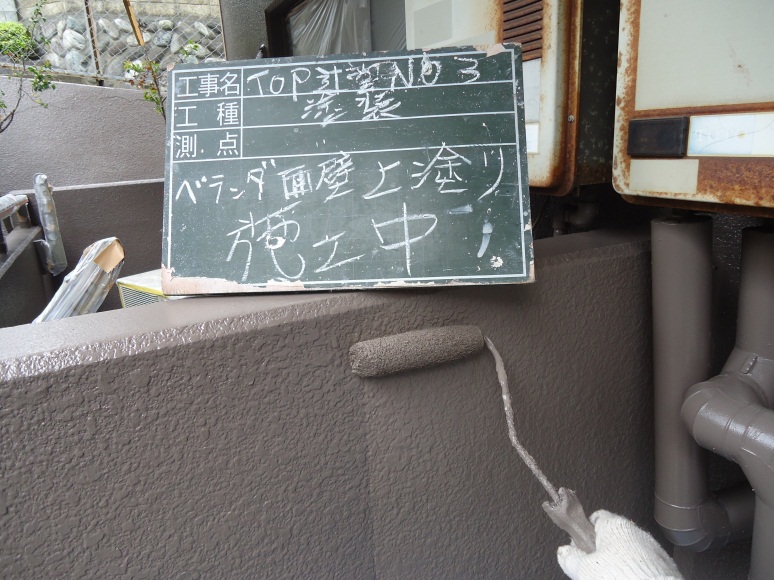 工事名 TOP 計塗 NO 3
工種 塗装
測.点
ベランダ面壁上塗リ
施工中